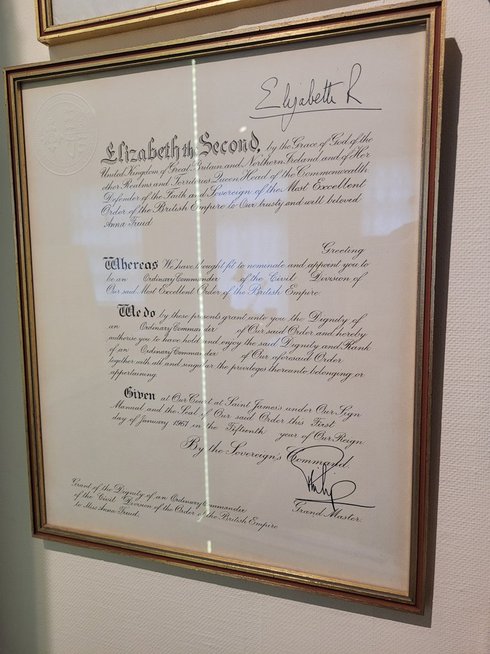 Elizabeth R
Elizabeth the Second, by the Grace of God of the
United Kingdom of Great Britain and Northern Ireland and of Her
other Realms and Territories Queen, Head of the Commonwealth,
Defender of the Faith and Sovereign of the Most Excellent
Order of the British Empire to Our trusty and well beloved
Anna Freud
Greeting
Whereas We have thought fit to nominate and appoint you to
be an Ordinary Commander of the Civil Division of
Our said Most Excellent Order of the British Empire
We do by these presents grant unto you the Dignity of
an Ordinary Commander of Our said Order and hereby
authorise you to have hold and enjoy the said Dignity and Rank
of an Ordinary Commander of Our aforesaid Order
together with all and singular the privileges thereunto belonging or
appertaining.
Given at Our Court at Saint James's under Our Sign
Manual and the Seal of Our said Order this First
day of January 1967 in the Fifteenth year of Our Reign.
By the Sovereign's Command.
Philip
Grand Master.
Grant of the Dignity of an Ordinary Commander
of the Civil Division of the Order of the British Empire
to Miss Anna Freud.